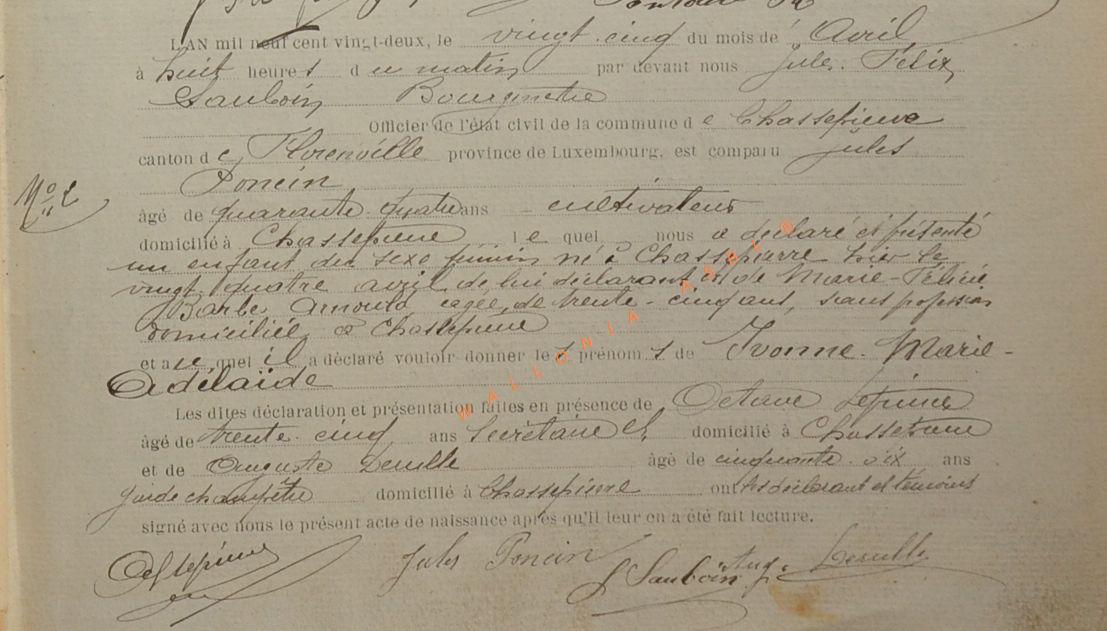 L'AN mil neuf cent vingt-deux, le vingt cinq du mois de Avril
à huit heures du matin par devant nous Jules Félix
Sauboin Bourgmestre
Officier de l'état civil de la commune de Chassepierre
canton de Florenville province de Luxembourg, est comparu Jules
Poncin
N° 2
âgé de quarante quatre ans cultivateur
domicilié à Chassepierre lequel nous a déclaré et présenté
un enfant du sexe féminin né à Chassepierre hier le
vingt quatre avril de lui déclarant et de Marie-Félicie
Barbe Arnould agée de trente-cinq ans, sans profession
domiciliée à Chassepierre
et auquel il a déclaré vouloir donner les prénoms de Yvonne Marie-
Adélaïde
Les dites déclaration et présentation faites en présence de Octave Lépine
âgé de trente cinq ans Secrétaire cl domicilié à Chassepierre
et de Auguste Deville âgé de cinquante six ans
garde champêtre domicilié à Chassepierre ont les déclarant et témoins
signé avec nous le présent acte de naissance après qu'il leur en a été fait lecture.
Jules Poncin
J Sauboin Aug. Deville
WALLONIA ASBL